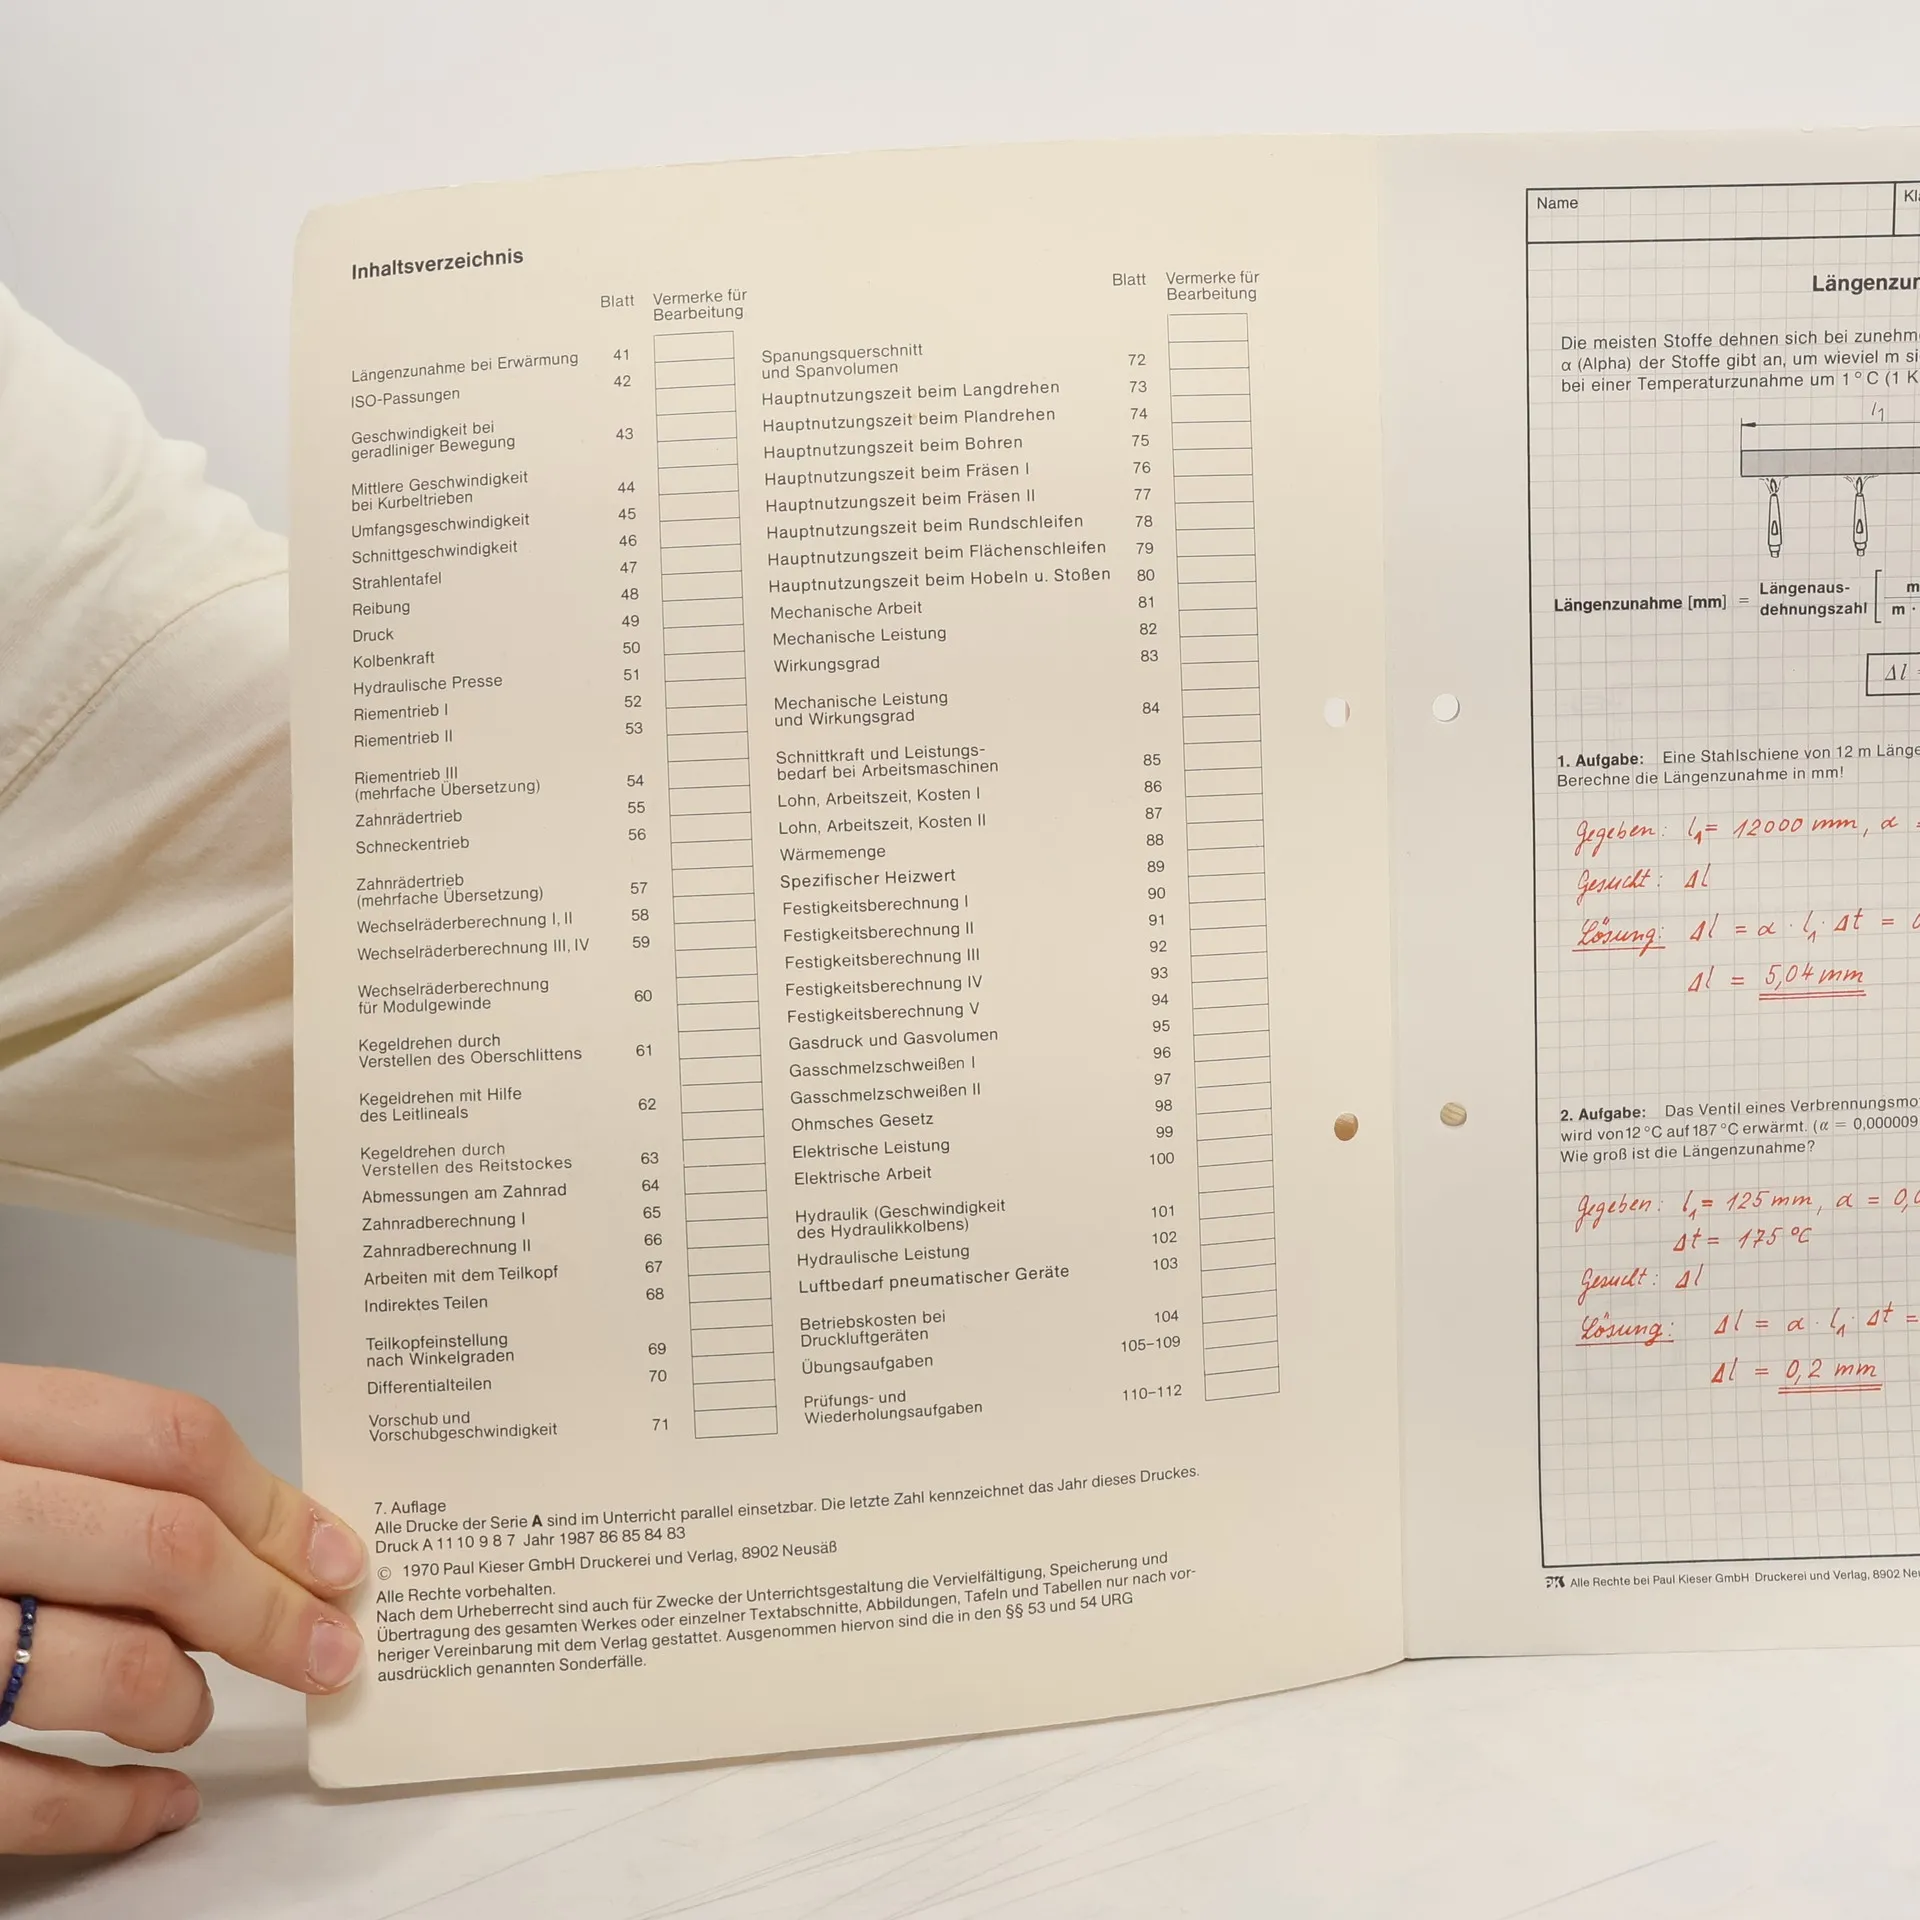 Inhaltsverzeichnis
Blatt Vermerke für
Bearbeitung
Längenzunahme bei Erwärmung 41
ISO-Passungen 42
Geschwindigkeit bei
geradliniger Bewegung 43
Mittlere Geschwindigkeit
bei Kurbeltrieben 44
Umfangsgeschwindigkeit 45
Schnittgeschwindigkeit 46
Strahlentafel 47
Reibung 48
Druck 49
Kolbenkraft 50
Hydraulische Presse 51
Riementrieb I 52
Riementrieb II 53
Riementrieb III
(mehrfache Übersetzung) 54
Zahnrädertrieb 55
Schneckentrieb 56
Zahnrädertrieb
(mehrfache Übersetzung) 57
Wechselräderberechnung I, II 58
Wechselräderberechnung III, IV 59
Wechselräderberechnung
für Modulgewinde 60
Kegeldrehen durch
Verstellen des Oberschlittens 61
Kegeldrehen mit Hilfe
des Leitlineals 62
Kegeldrehen durch
Verstellen des Reitstockes 63
Abmessungen am Zahnrad 64
Zahnradberechnung I 65
Zahnradberechnung II 66
Arbeiten mit dem Teilkopf 67
Indirektes Teilen 68
Teilkopfeinstellung
nach Winkelgraden 69
Differentialteilen 70
Vorschub und
Vorschubgeschwindigkeit 71
Blatt Vermerke für
Bearbeitung
Spanungsquerschnitt
und Spanvolumen 72
Hauptnutzungszeit beim Langdrehen 73
Hauptnutzungszeit beim Plandrehen 74
Hauptnutzungszeit beim Bohren 75
Hauptnutzungszeit beim Fräsen I 76
Hauptnutzungszeit beim Fräsen II 77
Hauptnutzungszeit beim Rundschleifen 78
Hauptnutzungszeit beim Flächenschleifen 79
Hauptnutzungszeit beim Hobeln u. Stoßen 80
Mechanische Arbeit 81
Mechanische Leistung 82
Wirkungsgrad 83
Mechanische Leistung
und Wirkungsgrad 84
Schnittkraft und Leistungs-
bedarf bei Arbeitsmaschinen 85
Lohn, Arbeitszeit, Kosten I 86
Lohn, Arbeitszeit, Kosten II 87
Wärmemenge 88
Spezifischer Heizwert 89
Festigkeitsberechnung I 90
Festigkeitsberechnung II 91
Festigkeitsberechnung III 92
Festigkeitsberechnung IV 93
Festigkeitsberechnung V 94
Gasdruck und Gasvolumen 95
Gasschmelzschweißen I 96
Gasschmelzschweißen II 97
Ohmsches Gesetz 98
Elektrische Leistung 99
Elektrische Arbeit 100
Hydraulik (Geschwindigkeit
des Hydraulikkolbens) 101
Hydraulische Leistung 102
Luftbedarf pneumatischer Geräte 103
Betriebskosten bei
Druckluftgeräten 104
Übungsaufgaben 105–109
Prüfungs- und
Wiederholungsaufgaben 110–112
7. Auflage
Alle Drucke der Serie A sind im Unterricht parallel einsetzbar. Die letzte Zahl kennzeichnet das Jahr dieses Druckes.
Druck A 11 10 9 8 7 Jahr 1987 86 85 84 83
© 1970 Paul Kieser GmbH Druckerei und Verlag, 8902 Neusäß
Alle Rechte vorbehalten.
Nach dem Urheberrecht sind auch für Zwecke der Unterrichtsgestaltung die Vervielfältigung, Speicherung und
Übertragung des gesamten Werkes oder einzelner Textabschnitte, Abbildungen, Tafeln und Tabellen nur nach vor-
heriger Vereinbarung mit dem Verlag gestattet. Ausgenommen hiervon sind die in den §§ 53 und 54 URG
ausdrücklich genannten Sonderfälle.
Name
Die meisten Stoffe dehnen sich bei
α (Alpha) der Stoffe gibt an, um wieviel m
bei einer Temperaturzunahme um 1° C (1 K
l1
Längenzunahme [mm] = Längenaus-
dehnungszahl
m
m ·
Δl
1. Aufgabe: Eine Stahlschiene von 12 m Länge
Berechne die Längenzunahme in mm!
Gegeben: l1 = 12000 mm, α =
Gesucht: Δl
Lösung: Δl = α · l1 · Δt =
Δl = 5,04 mm
2. Aufgabe: Das Ventil eines
wird von 12 °C auf 187 °C erwärmt. (α = 0,000009
Wie groß ist die Längenzunahme?
Gegeben: l1 = 125 mm, α = 0,
Δt = 175 °C
Gesucht: Δl
Lösung: Δl = α · l1 · Δt =
Δl = 0,2 mm
Alle Rechte bei Paul Kieser GmbH Druckerei und Verlag, 8902